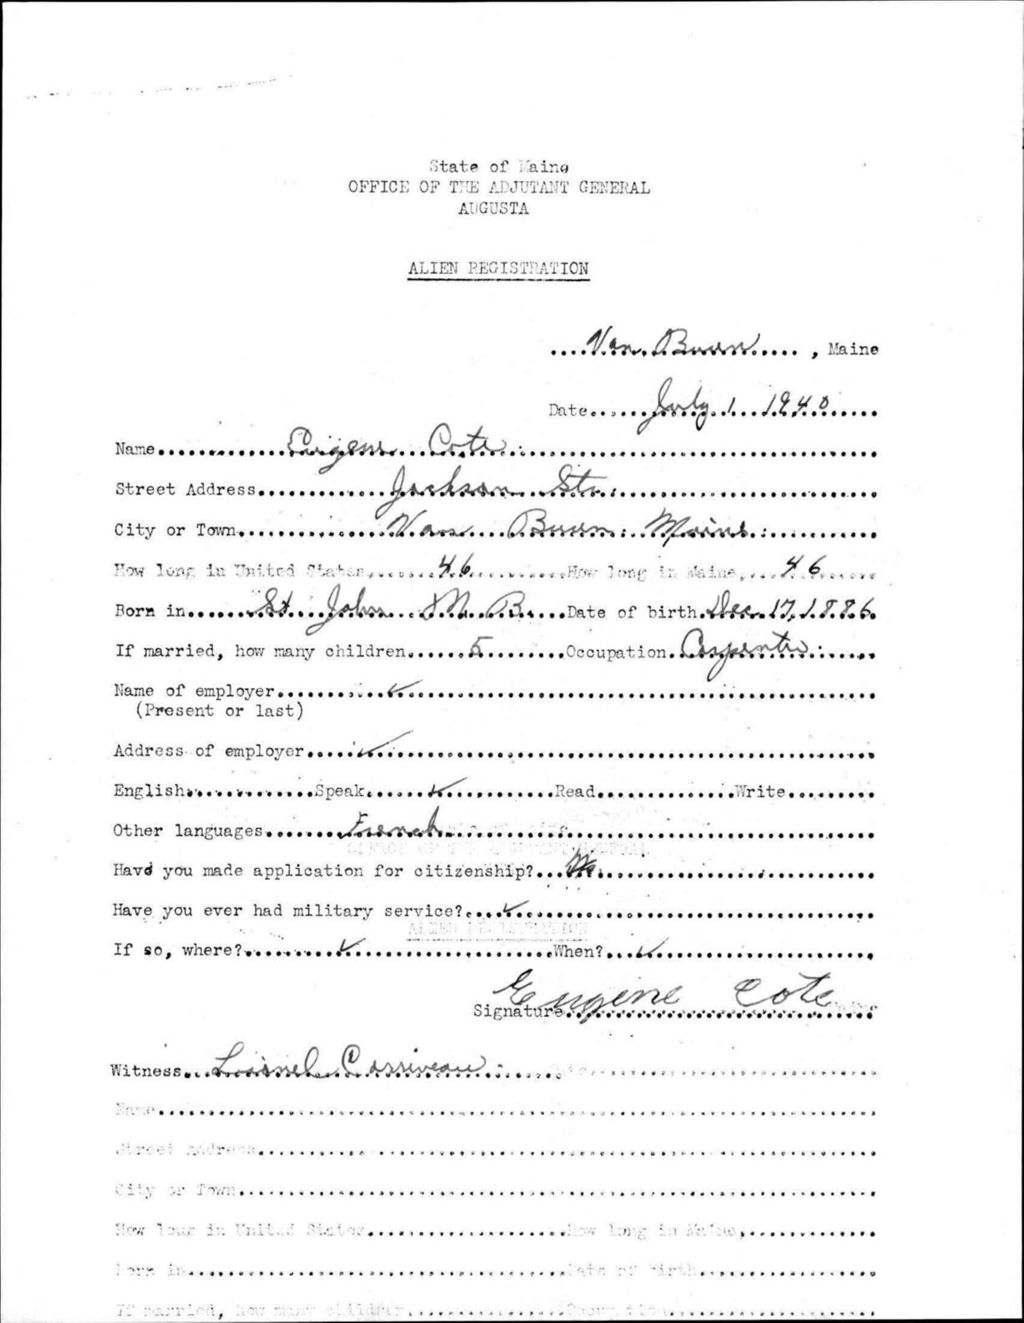 State of Maine
OFFICE OF THE ADJUTANT GENERAL
AUGUSTA
ALIEN REGISTRATION
Van Buren, Maine
Date July 1 1940
Name Eugene Cote
Street Address Jackson St.
City or Town Van Buren Maine
How long in United States 46 How long in Maine 46
Born in St John N. B. Date of birth Dec. 17, 1886
If married, how many children 5 Occupation Carpenter
Name of employer ✓
(Present or last)
Address of employer ✓
English Speak ✓ Read Write
Other languages French
OFFICE OF THE ADJUTANT GENERAL
Have you made application for citizenship? No
Have you ever had military service? ✓
ALIEN REGISTRATION
If so, where? ✓ When? ✓
Signature Eugene Cote
Witness Lionel Corriveau
Name
Street Address
City or Town
How long in United States How long in Maine
Born in Date of birth
If married, how many children Occupation